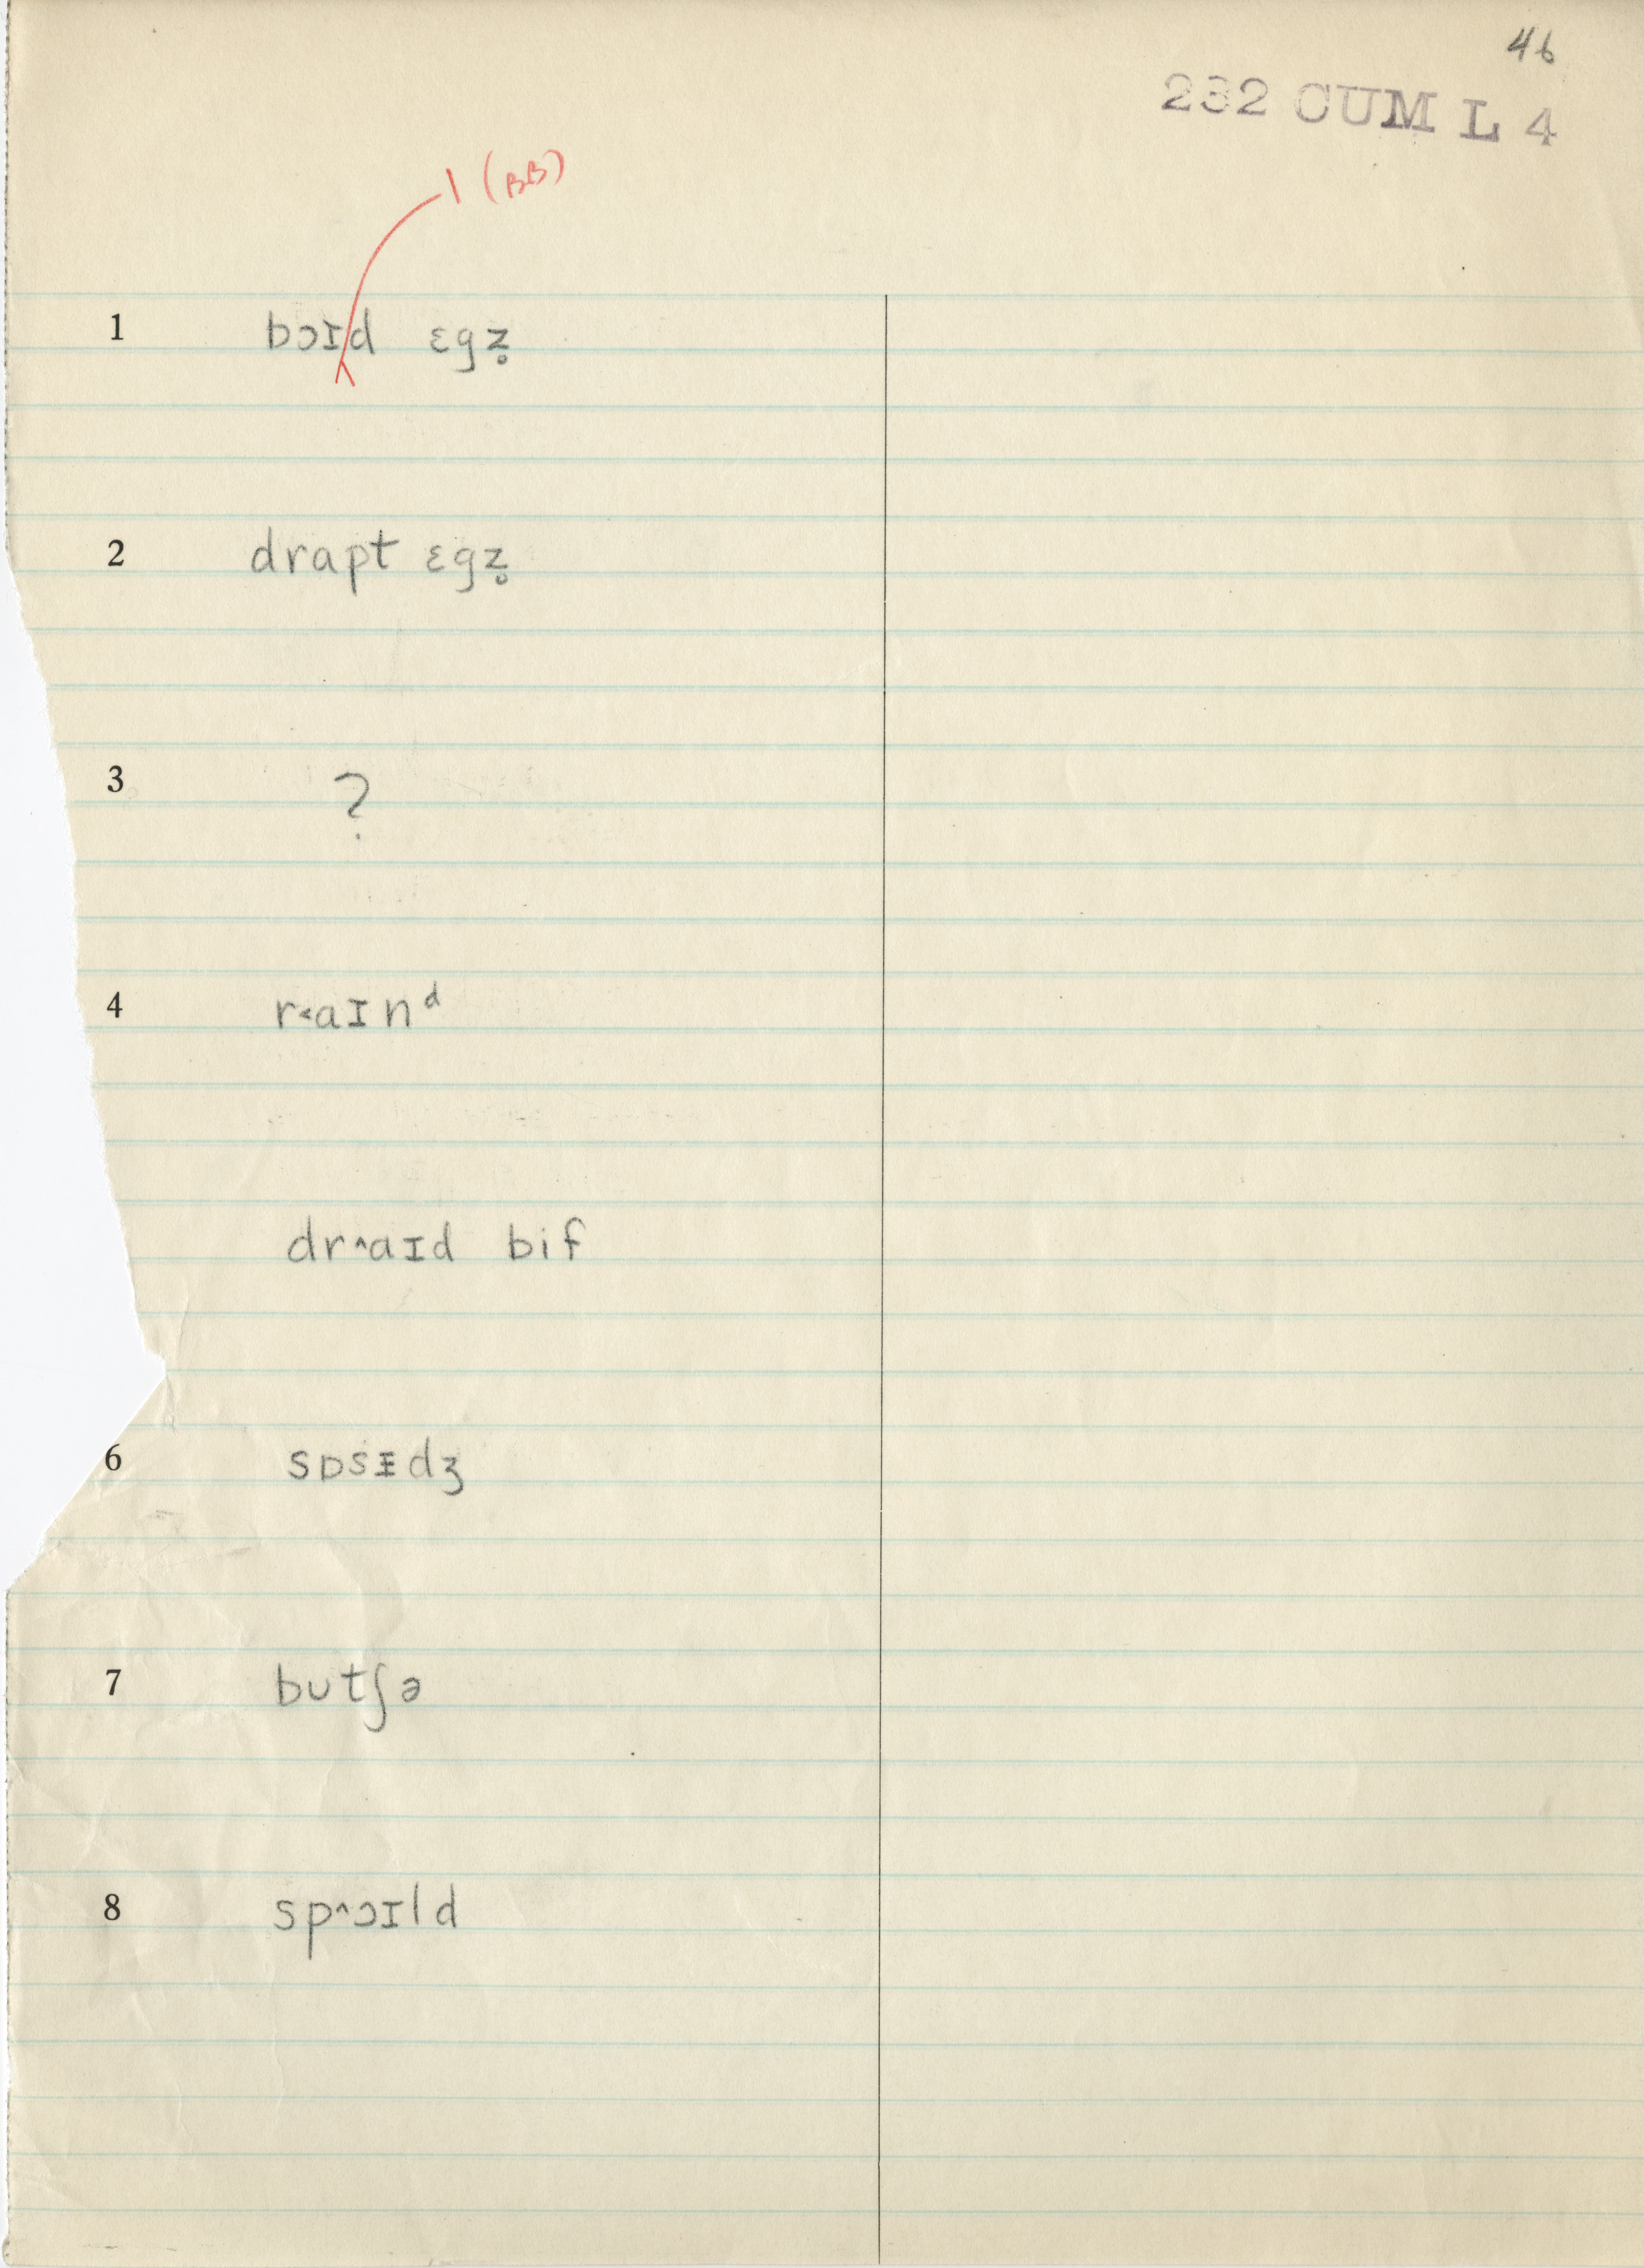 46
232 CUM L 4
l (BB)
1 bɔɪd ɛgz̥
2 drapt ɛgz̥
3 ?
4 r˂aɪnᵈ
dr^aɪd bif
6 sɒsᵻdʒ
7 butʃə
8 sp^ɔɪld